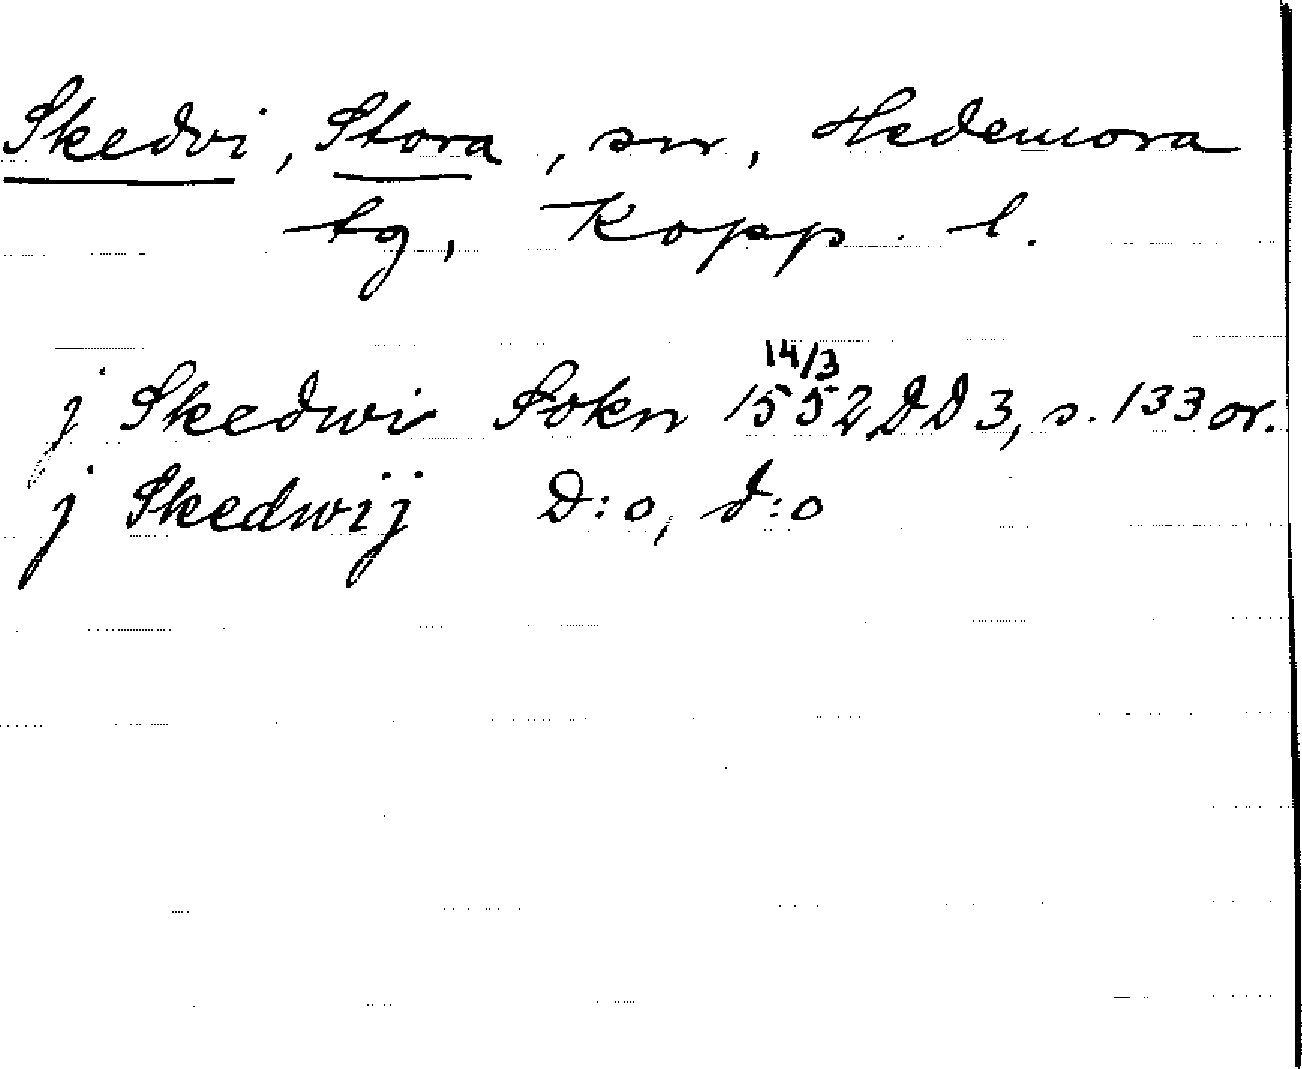 Skedvi, Stora, sn, Hedemora
tg, Kopp. l.
j Skedwi Sokn 14/3 1552 DD 3, s. 133 or.
j Skedwij D:o, d:o